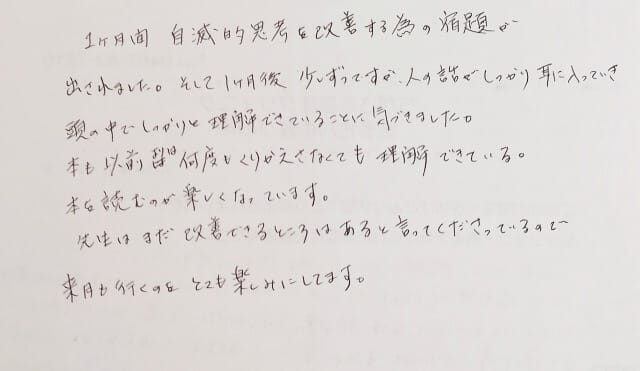 1ヶ月間 自滅的思考を改善する為の宿題が
出されました。そして1ヶ月後 少しずつですが、人の話がしっかり耳に入っていき
頭の中でしっかりと理解できていることに気づきました。
本も以前 何度もくりかえさなくても理解できている。
本を読むのが楽しくなっています。
先生はまだ改善できるところはあると言ってくださっているので
来月も行くのをとても楽しみにしてます。